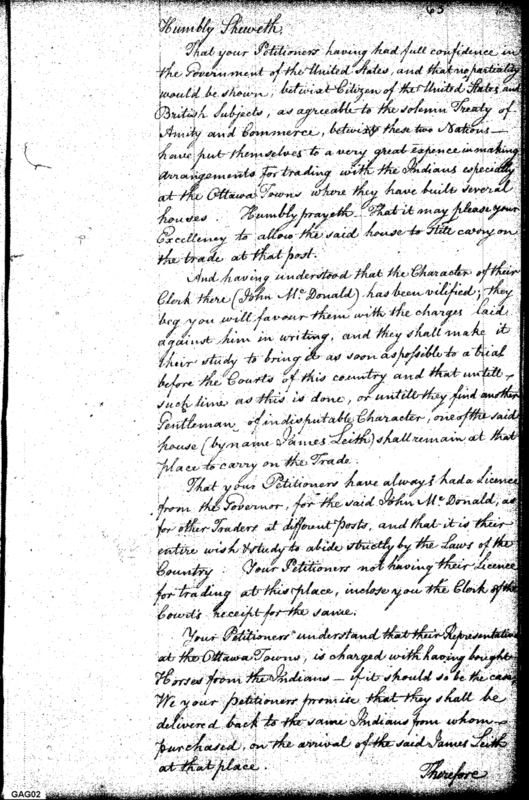 63
Humbly Sheweth,
That your Petitioners having had full confidence in
the Government of the United States, and that no partiality
would be shown, betwixt Citizen of the United States and
British Subjects, as agreeable to the solemn Treaty of
Amity and Commerce, betwixt these two Nations —
have put themselves to a very great expence in making
arrangements for trading with the Indians especially
at the Ottawa Towns where they have built several
houses. Humbly prayeth That it may please your
Excellency to allow the said house to still carry on
the trade at that post.
And having understood that the Character of their
Clerk there (John Mc Donald) has been vilified; they
beg you will favour them with the charges laid
against him in writing, and they shall make it
their study to bring it as soon as possible to a trial
before the Courts of this country and that untill
such time as this is done, or untill they find another
Gentleman of indisputable Character, one of the said
house (by name James Leith) shall remain at that
place to carry on the Trade
That your Petitioners have always had a Licence
from the Governor, for the said John Mc Donald, as
for other Traders at different Posts, and that it is their
entire wish & study to abide strictly by the Laws of the
Country. Your Petitioners not having their Licence
for trading at this place, inclose you the Clerk of the
Courts receipt for the same.
Your Petitioners understand that their Representative
at the Ottawa Towns, is charged with having bought
Horses from the Indians — if it should so be the case,
We your petitioners promise that they shall be
delivered back to the same Indians from whom
purchased, on the arrival of the said James Leith
at that place.
Therefore
GAG02